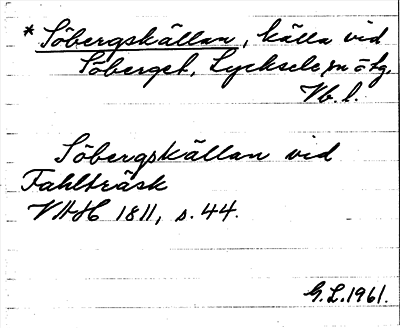 * Söbergskällan, källa vid
Söberget, Lycksele sn o tg,
Vb. l.
Söbergskällan vid
Fahlträsk
VAH 1811, s. 44.
G.L.1961.